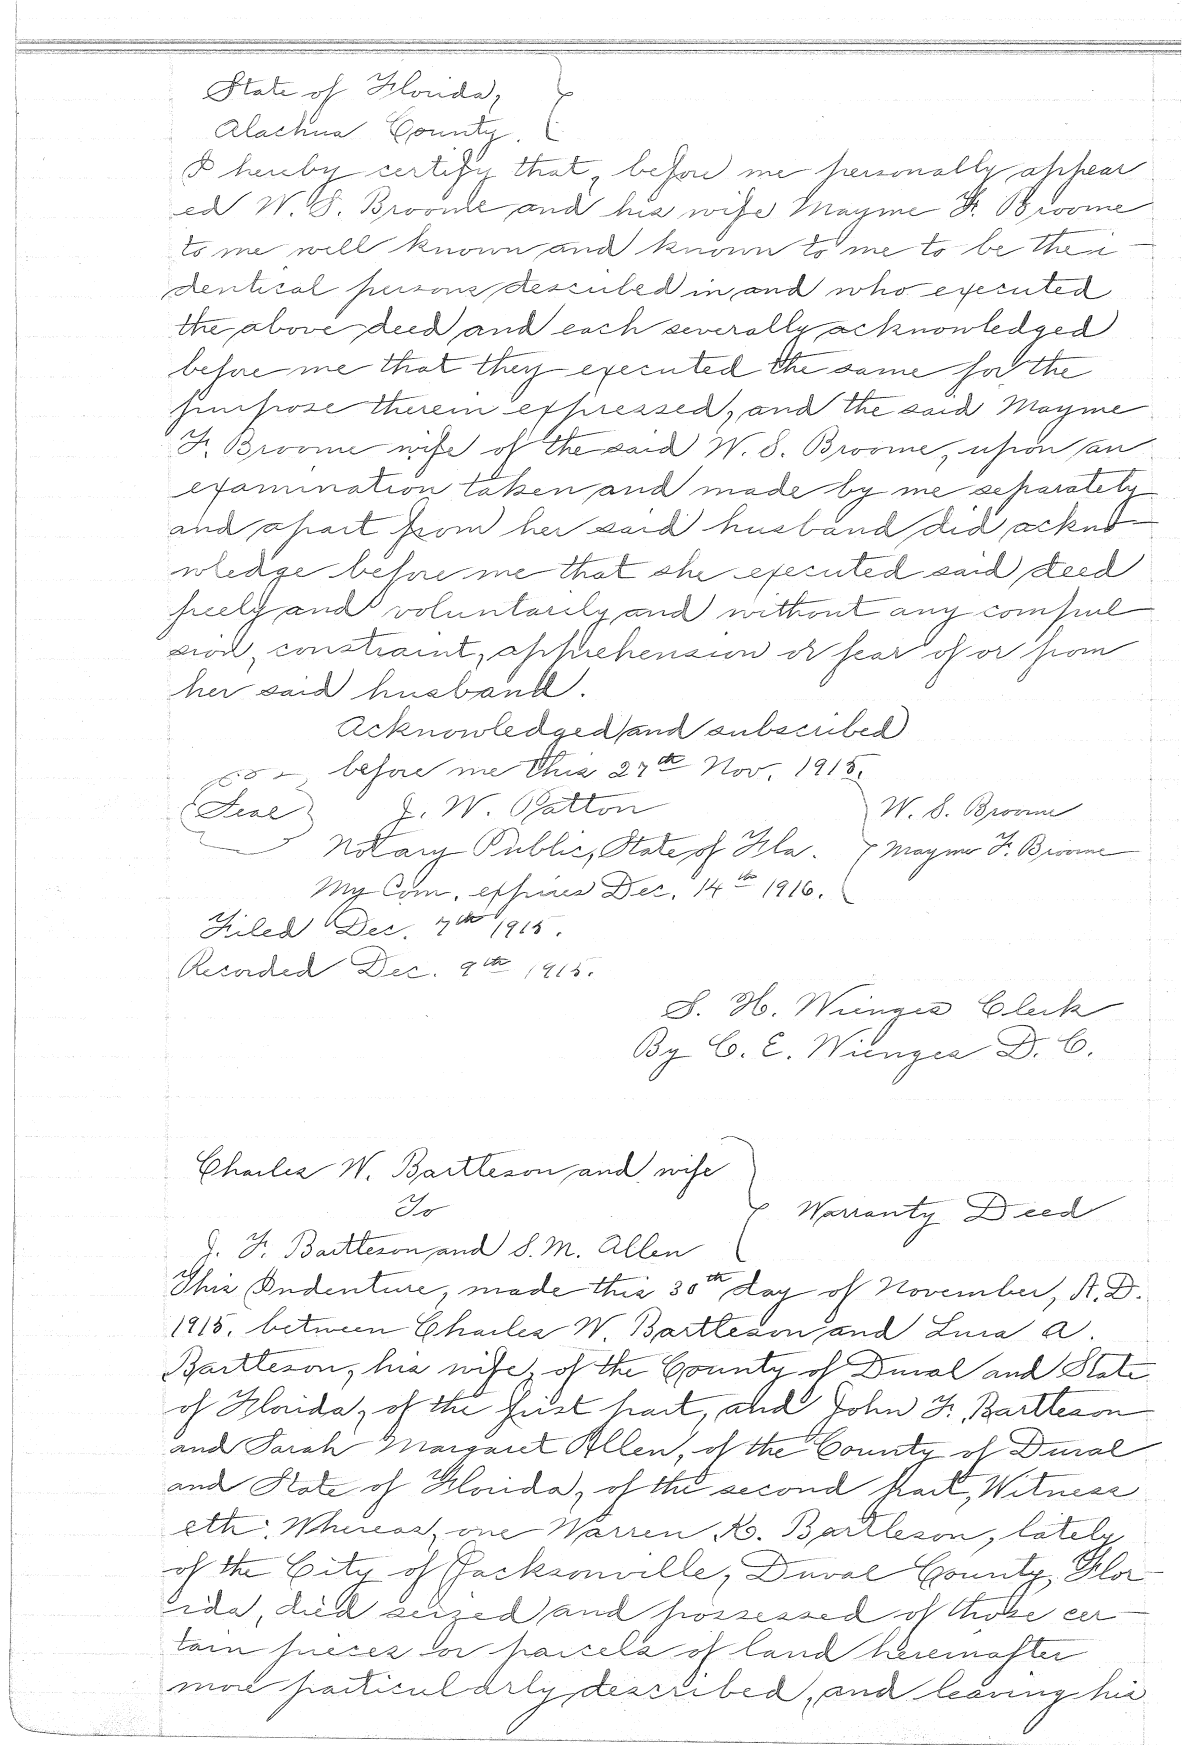 State of Florida,
Alachua County.
I hereby certify that, before me personally appear
ed W. S. Broome and his wife Mayme F. Broome
to me well known and known to me to be the i
dentical persons described in and who executed
the above deed and each severally acknowledged
before me that they executed the same for the
purpose therein expressed, and the said Mayme
F. Broome wife of the said W. S. Broome, upon an
examination taken and made by me separately
and apart from her said husband did ackno
wledge before me that she executed said deed
freely and voluntarily and without any compul
sion, constraint, apprehension or fear of or from
her said husband.
Acknowledged and subscribed
before me this 27th Nov. 1915.
Seal J. W. Patton W. S. Broome
Notary Public, State of Fla. Mayme F. Broome
My Com. expires Dec. 14th 1916.
Filed Dec. 7th 1915.
Recorded Dec. 9th 1915.
S. H. Wienges Clerk
By C. E. Wienges D. C.
Charles W. Bartleson and wife
To Warranty Deed
J. F. Bartleson and S. M. Allen
This Indenture, made this 30th day of November, A.D.
1915. between Charles W. Bartleson and Lura A.
Bartleson, his wife, of the County of Duval and State
of Florida, of the first part, and John F. Bartleson
and Sarah Margaret Allen, of the County of Duval
and State of Florida, of the second part, Witness
eth: Whereas, one Warren K. Bartleson, lately
of the City of Jacksonville, Duval County, Flor
ida, died seized and possessed of those cer
tain pieces or parcels of land hereinafter
more particularly described, and leaving his